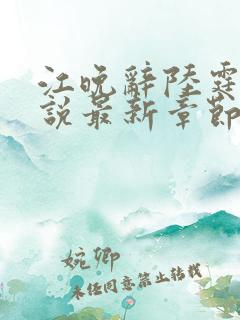 江晚辞陸霆
說最新章節
婉卿
未任同意禁止转载